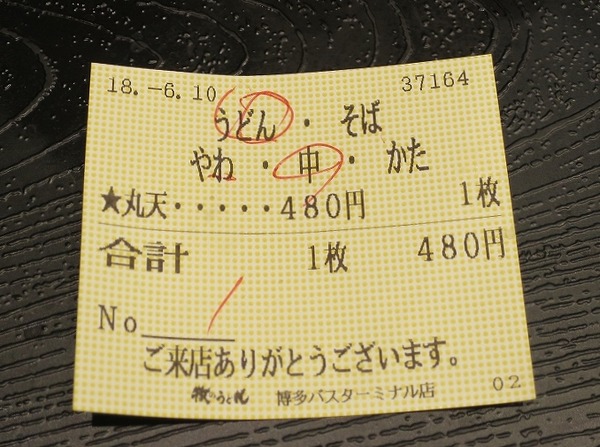 18.-6.10 37164
うどん・そば
やわ・中・かた
★丸天・・・・・480円 1枚
合計 1枚 480円
No 1
ご来店ありがとうございます。
牧のうどん 博多バスターミナル店 02